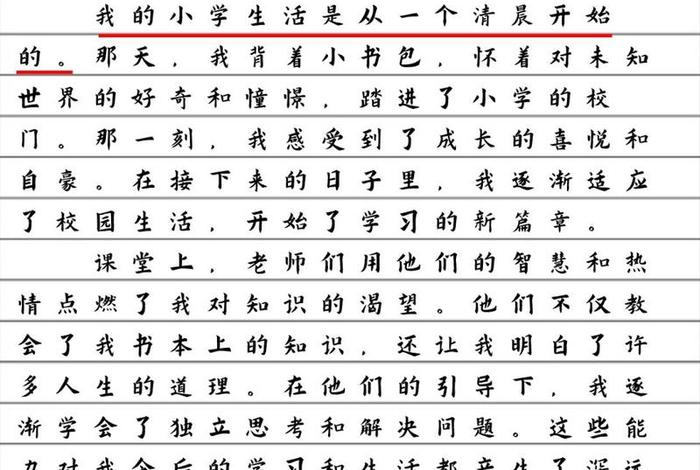 我的小学生活是从一个清晨开始
的。那天，我背着小书包，怀着对未知
世界的好奇和憧憬，踏进了小学的校
门。那一刻，我感受到了成长的喜悦和
自豪。在接下来的日子里，我逐渐适应
了校园生活，开始了学习的新篇章。
课堂上，老师们用他们的智慧和热
情点燃了我对知识的渴望。他们不仅教
会了我书本上的知识，还让我明白了许
多人生的道理。在他们的引导下，我逐
渐学会了独立思考和解决问题。这些能
力对我今后的学习和生活都产生了深远